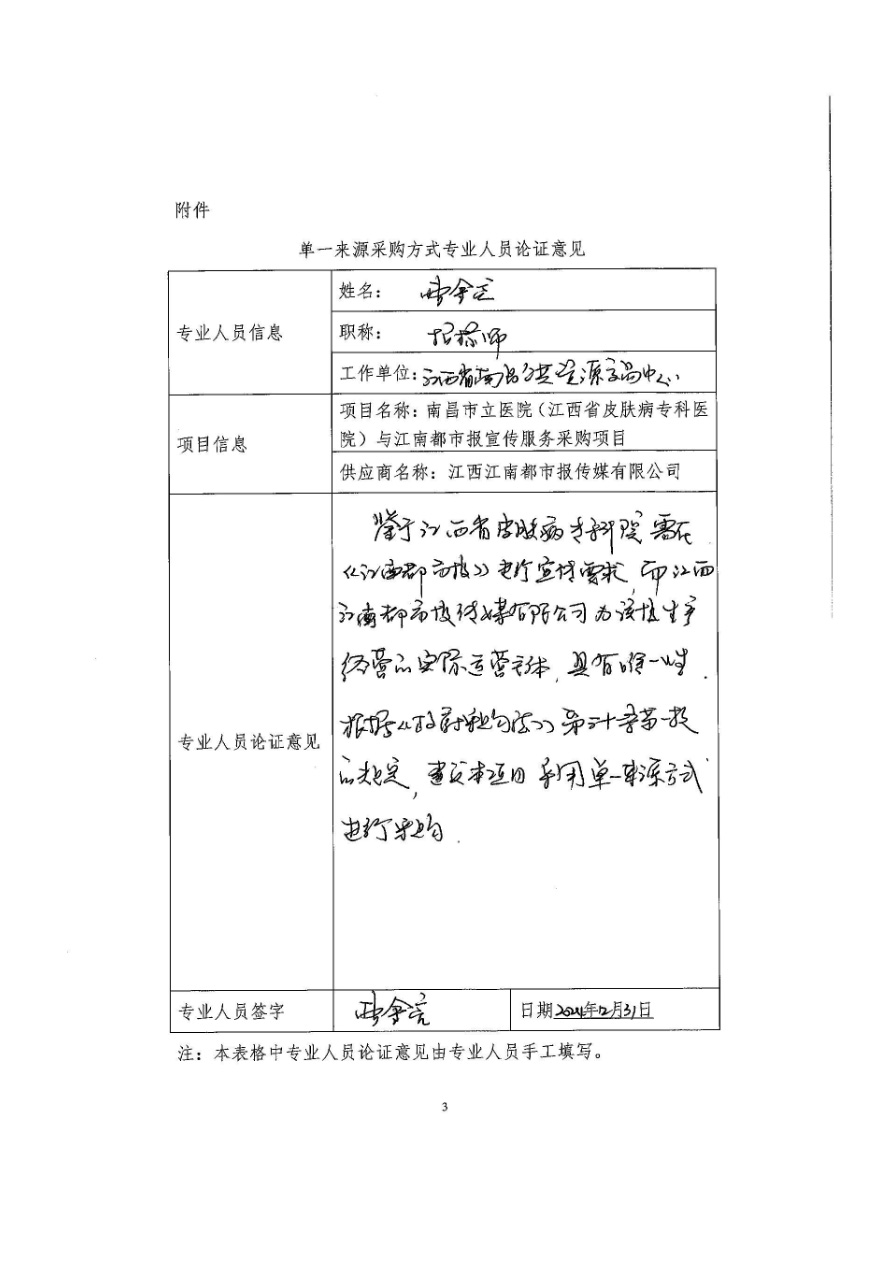 附件
单一来源采购方式专业人员论证意见
专业人员信息
姓名：
职称： 招标师
工作单位：江西省南昌公共资源交易中心
项目信息
项目名称：南昌市立医院（江西省皮肤病专科医
院）与江南都市报宣传服务采购项目
供应商名称：江西江南都市报传媒有限公司
专业人员论证意见
鉴于江西省皮肤病专科医院需在
《江南都市报》进行宣传需求，而江西
江南都市报传媒有限公司为该报生产
经营的实际运营主体，具有唯一性．
根据《政府采购法》第三十一条第一款
的规定，建议本项目采用单一来源方式
进行采购．
专业人员签字
日期 2024年12月31日
注：本表格中专业人员论证意见由专业人员手工填写。
3